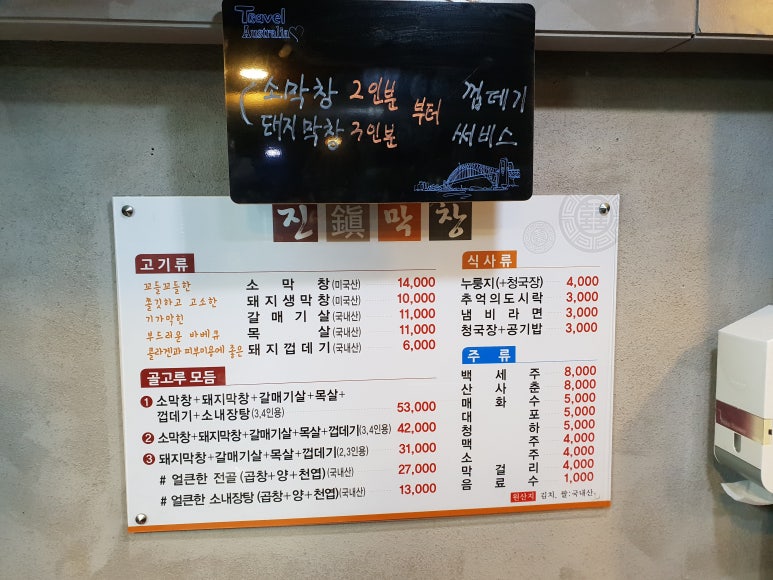 Travel
Australia
소막창 2인분 부터 껍데기
돼지막창 3인분 써비스
진 鎭 막 창
고기류
꼬들꼬들한 소막창(미국산) 14,000
쫄깃하고 고소한 돼지생막창(미국산) 10,000
기가막힌 갈매기살(국내산) 11,000
부드러운 바베큐 목살(국내산) 11,000
콜라겐과 피부미용에 좋은 돼지껍데기(국내산) 6,000
골고루 모듬
❶ 소막창+돼지막창+갈매기살+목살+
껍데기+소내장탕(3,4인용) 53,000
❷ 소막창+돼지막창+갈매기살+목살+껍데기(3,4인용) 42,000
❸ 돼지막창+갈매기살+목살+껍데기(2,3인용) 31,000
# 얼큰한 전골 (곱창+양+천엽)(국내산) 27,000
# 얼큰한 소내장탕 (곱창+양+천엽)(국내산) 13,000
식사류
누룽지(+청국장) 4,000
추억의도시락 3,000
냄비라면 3,000
청국장+공기밥 3,000
주류
백세주 8,000
산사춘 8,000
매화수 5,000
대포 5,000
청하 5,000
맥주 4,000
소주 4,000
막걸리 4,000
음료수 1,000
원산지 김치, 쌀:국내산